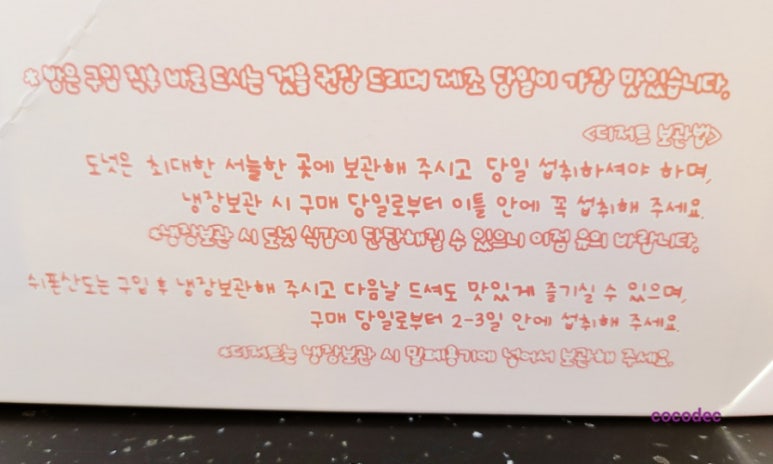 *빵은 구입 직후 바로 드시는 것을 권장 드리며 제조 당일이 가장 맛있습니다.
<디저트 보관법>
도넛은 최대한 서늘한 곳에 보관해 주시고 당일 섭취하셔야 하며,
냉장보관 시 구매 당일로부터 이틀 안에 꼭 섭취해 주세요.
*냉장보관 시 도넛 식감이 단단해질 수 있으니 이점 유의 바랍니다.
쉬폰산도는 구입 후 냉장보관해 주시고 다음날 드셔도 맛있게 즐기실 수 있으며,
구매 당일로부터 2-3일 안에 섭취해 주세요.
*디저트는 냉장보관 시 밀폐용기에 넣어서 보관해 주세요.
cocodec